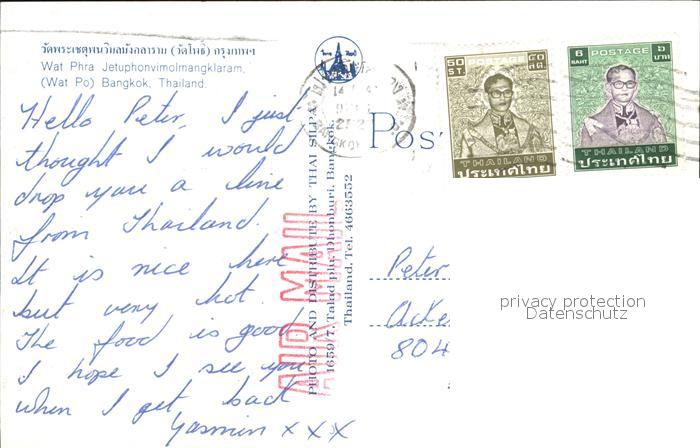 วัดพระเชตุพนวิมลมังกลาราม (วัดโพธิ์) กรุงเทพฯ
Wat Phra Jetuphonvimolmangklaram,
(Wat Po) Bangkok, Thailand.
Hello Peter, I just
thought I would
drop you a line
from Thailand.
It is nice here
but very hot.
The food is good
I hope I see you
when I get back
Yasmin x x x
PHOTO AND DISTRIBUTE BY THAI SILPA
1659/7, Talad plu, Dhonburi, Bangkok,
Thailand, Tel. 4663552
AIR MAIL
Post
50 POSTAGE ๕๐
ST. สต.
THAILAND
ประเทศไทย
6 POSTAGE ๖
BAHT บาท
THAILAND
ประเทศไทย
Peter
Acke
804
privacy protection
Datenschutz